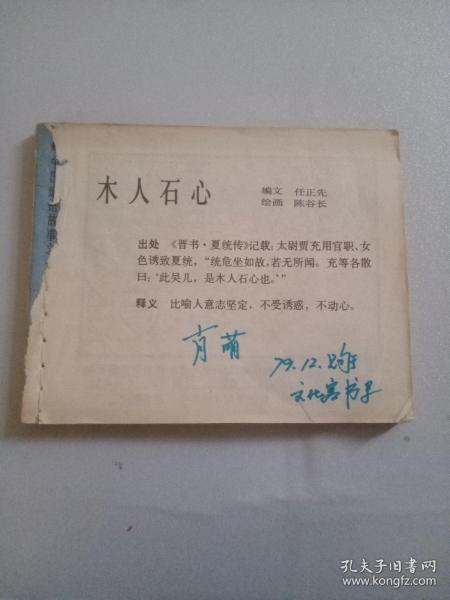 木人石心
编文 任正先
绘画 陈谷长
出处 《晋书·夏统传》记载：太尉贾充用官职、女
色诱致夏统，“统危坐如故，若无所闻。充等各散
曰：‘此吴儿，是木人石心也。’”
释义 比喻人意志坚定，不受诱惑，不动心。
肖萌
79.12.
文化宫书店
孔夫子旧书网
www.kongfz.com